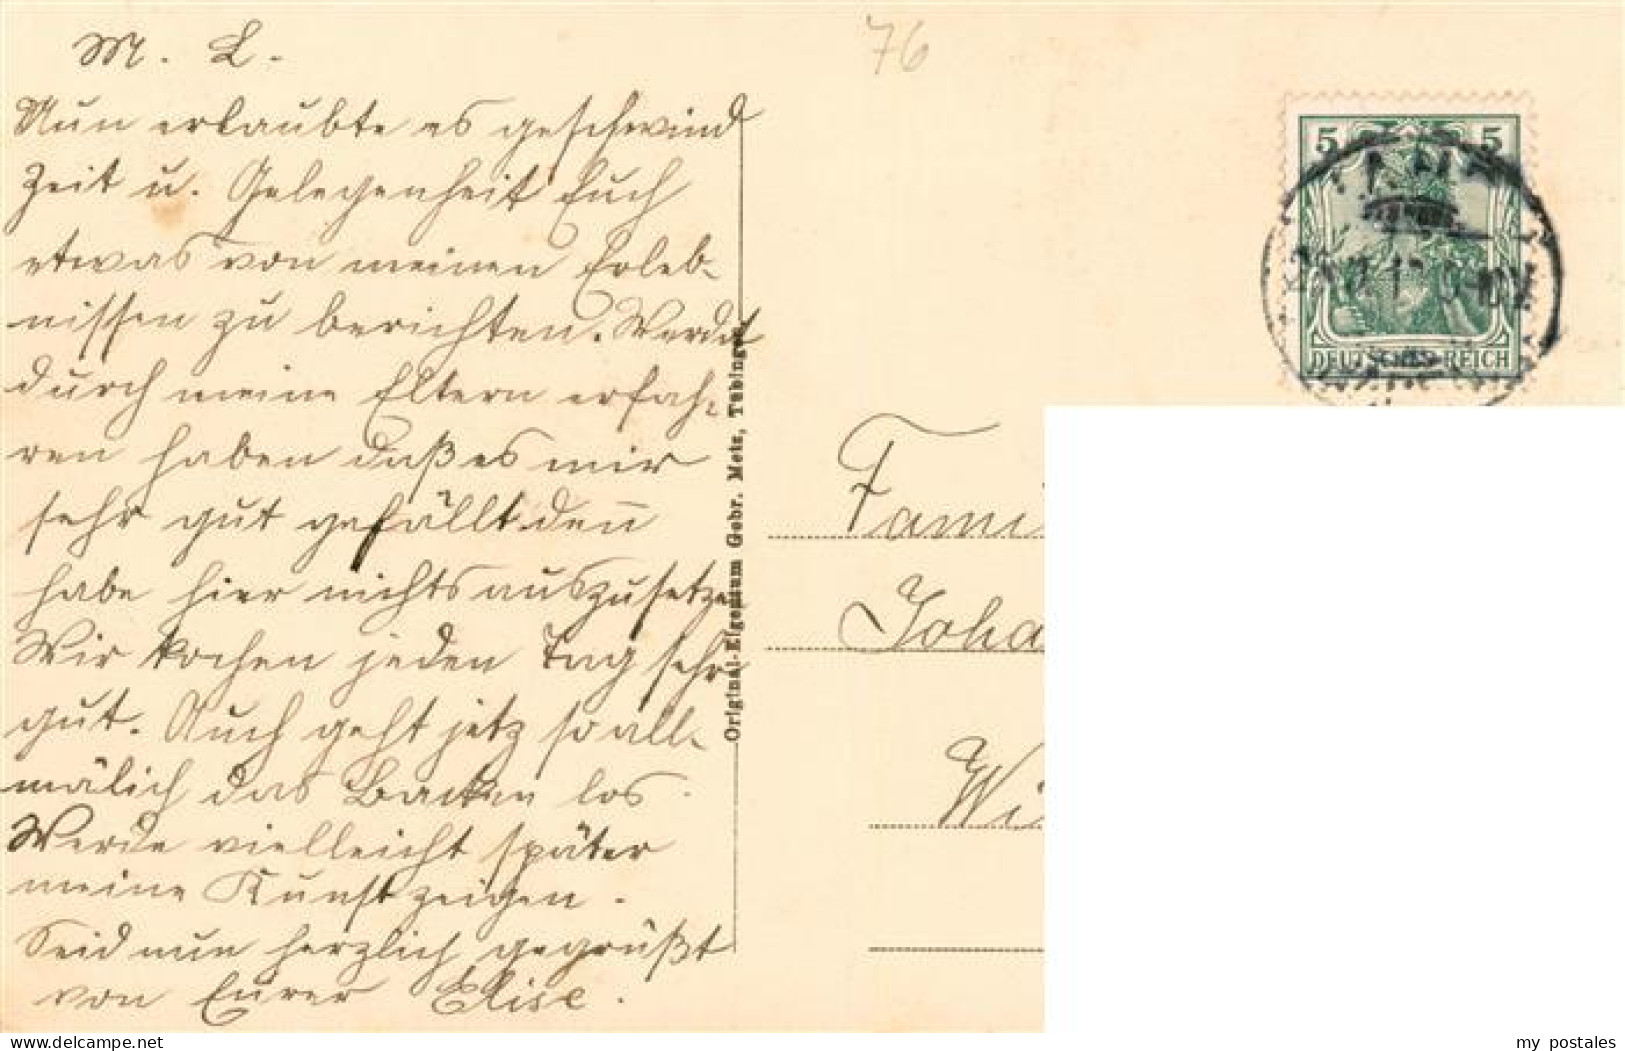 M. L.
Nun erlaubte es geschwind
Zeit u. Gelegenheit Euch
etwas von meinen Erleb-
nissen zu berichten. Werdet
durch meine Eltern erfah-
ren haben daß es mir
sehr gut gefällt. den̄
habe hier nichts auszusetzen
Wir kochen jeden Tag sehr
gut. Auch geht jetz so all-
mälich das Backen los.
Werde vielleicht später
meine Kunst zeigen.
Seid nun herzlich gegrüßt
von Eurer Elise.
76
Original-Eigentum Gebr. Metz, Tübingen
5 5
DEUTSCHES REICH
Fami
Joha
Wi
my postales
www.delcampe.net